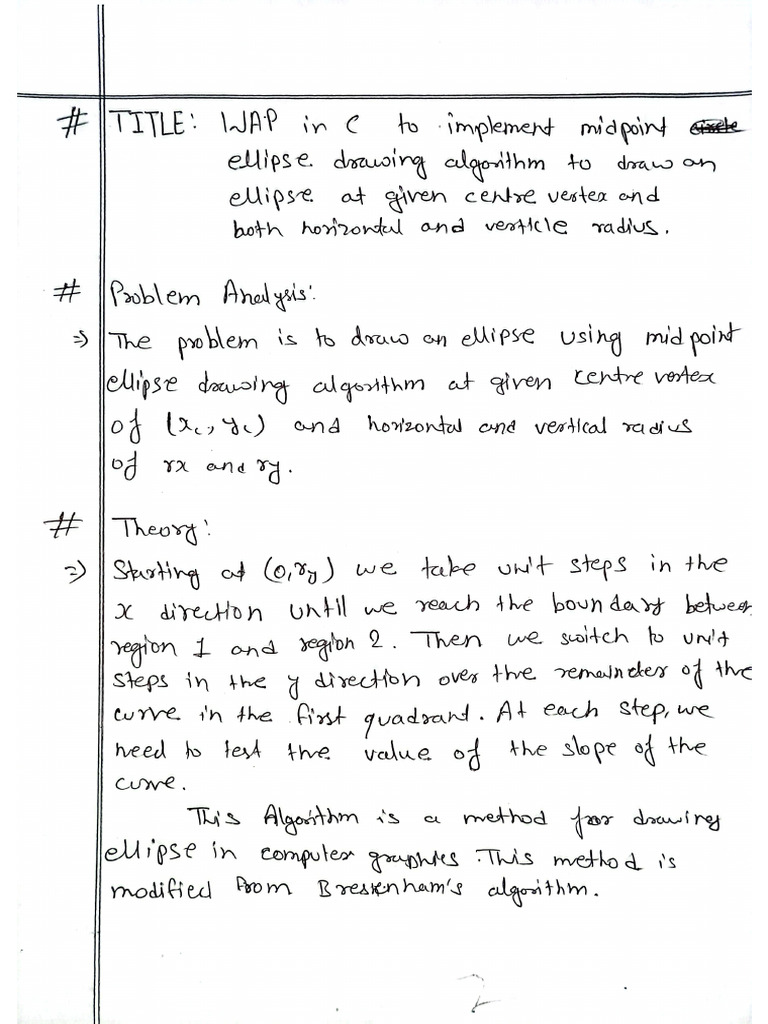 # TITLE: WAP in C to implement midpoint
ellipse drawing algorithm to draw an
ellipse at given centre vertex and
both horizontal and verticle radius.
# Problem Analysis:
⇒ The problem is to draw an ellipse using midpoint
ellipse drawing algorithm at given centre vertex
of (xc, yc) and horizontal and vertical radius
of rx and ry.
# Theory:
⇒ Starting at (0, ry) we take unit steps in the
x direction until we reach the boundary between
region 1 and region 2. Then we switch to unit
steps in the y direction over the remainder of the
curve in the first quadrant. At each step, we
need to test the value of the slope of the
curve.
This Algorithm is a method for drawing
ellipse in computer graphics. This method is
modified from Bresenham's algorithm.
2